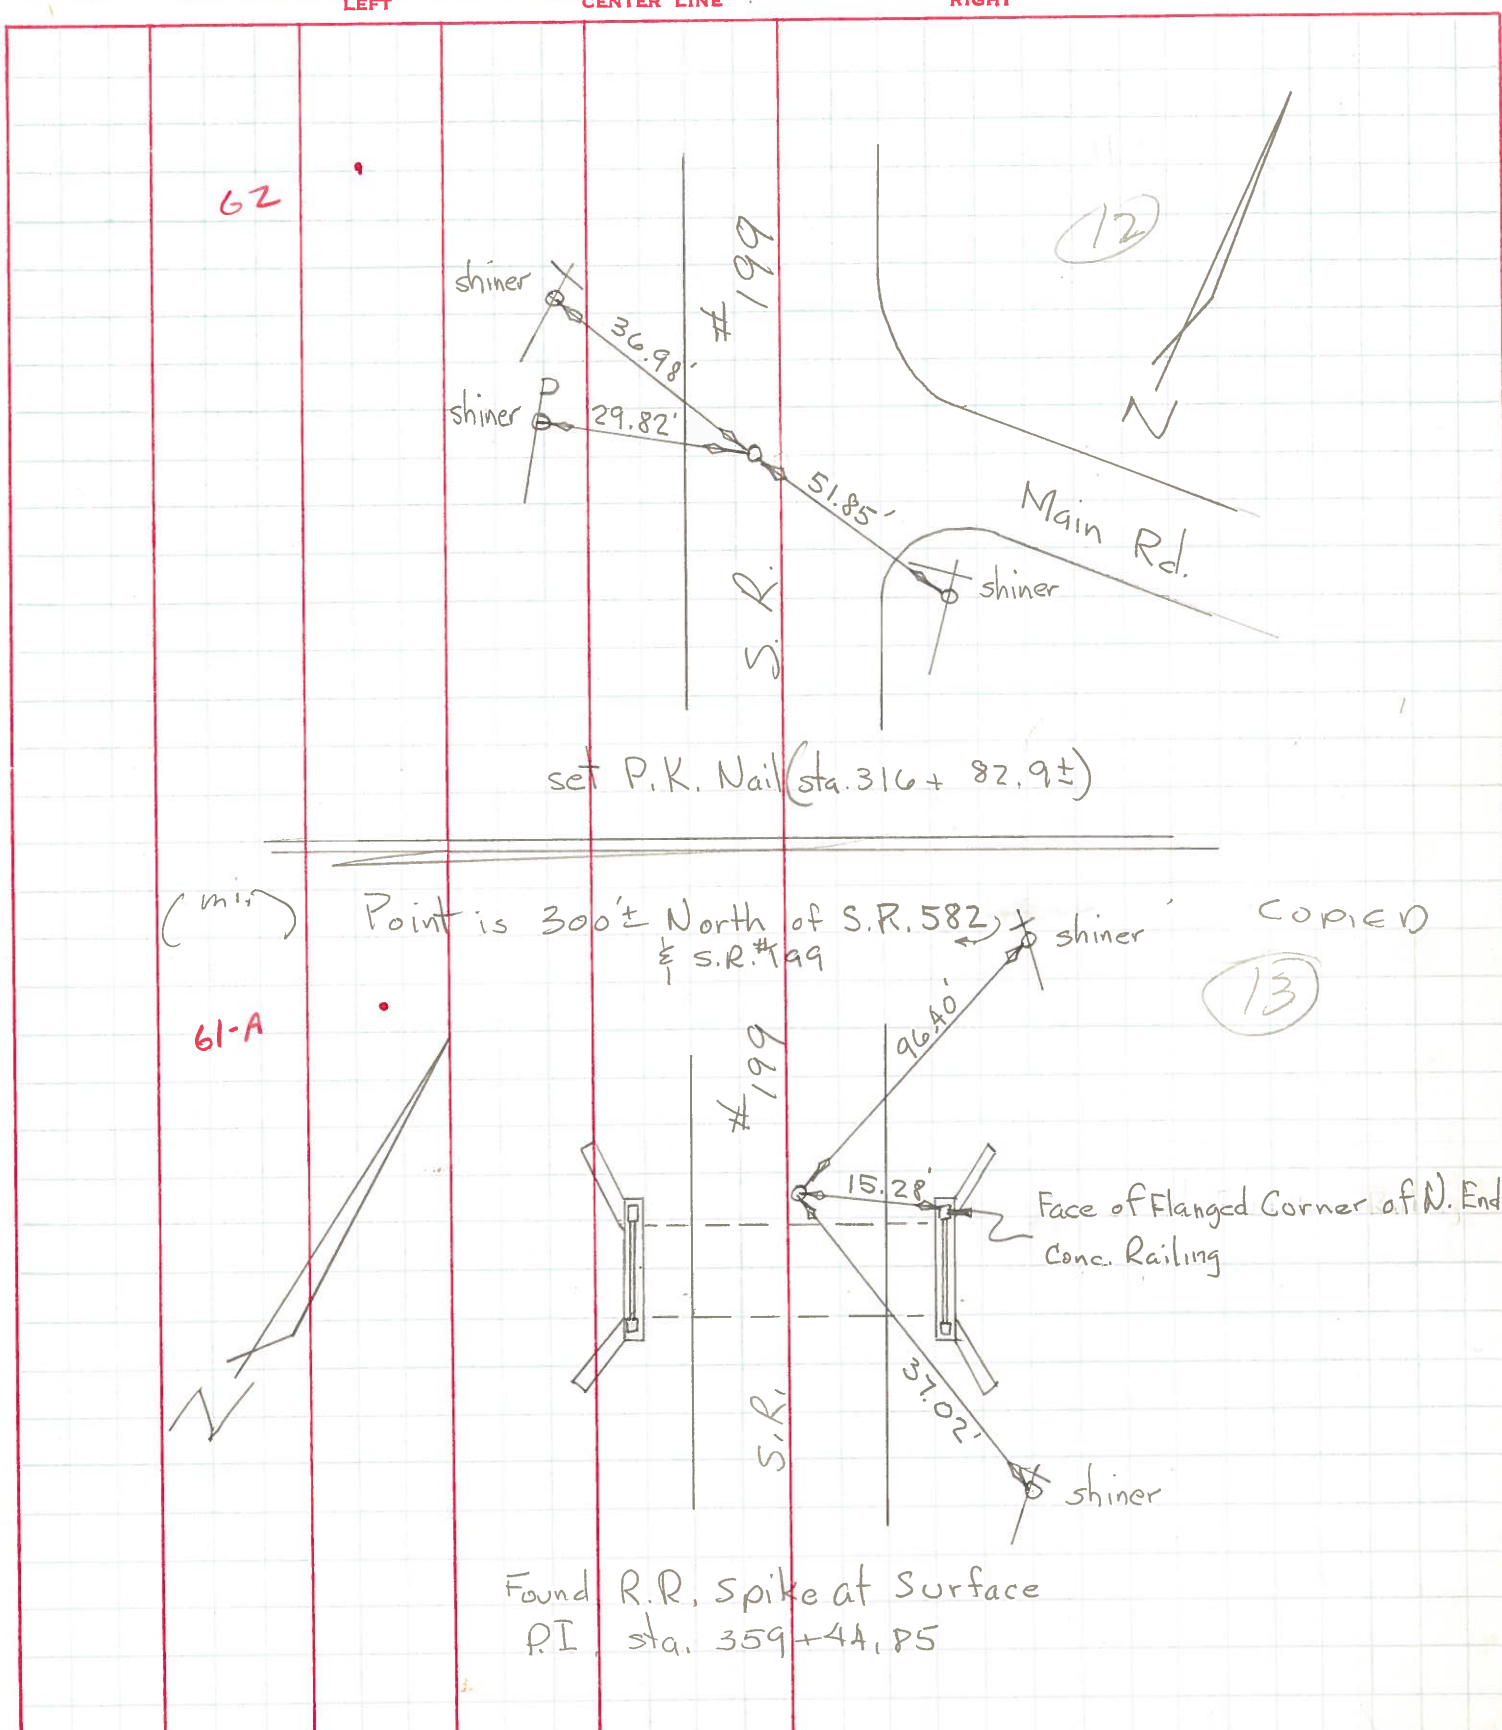 LEFT CENTER LINE RIGHT
62
12
# 199
shiner
36.98'
P
shiner
29.82'
51.85'
N
Main Rd.
shiner
S. R.
set P.K. Nail (sta. 316+ 82.9±)
Point is 300'± North of S.R. 582
& S.R. #199
shiner
COPIED
13
61-A
96.40'
# 199
15.28'
Face of Flanged Corner of N. End
Conc. Railing
37.02'
N
S.R.
shiner
Found R.R. Spike at Surface
P.I. sta. 359+44.85